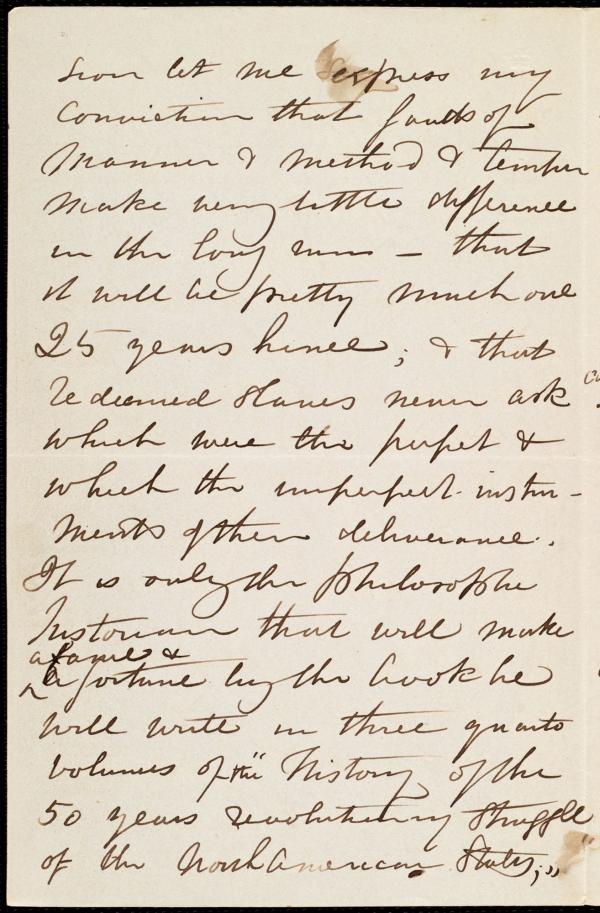 sion let me express my
Conviction that faults of
Manner & method & temper
make very little difference
in the long run – that
it will be pretty much one
25 years hence; & that
redeemed slaves never ask
which were the perfect &
which the imperfect instru-
ments of their deliverance.
It is only the philosophe
historian that will make
a fame &
a fortune by the book he
will write in three quarto
volumes of the "History of the
50 years revolutionary struggle
of the North American States,"